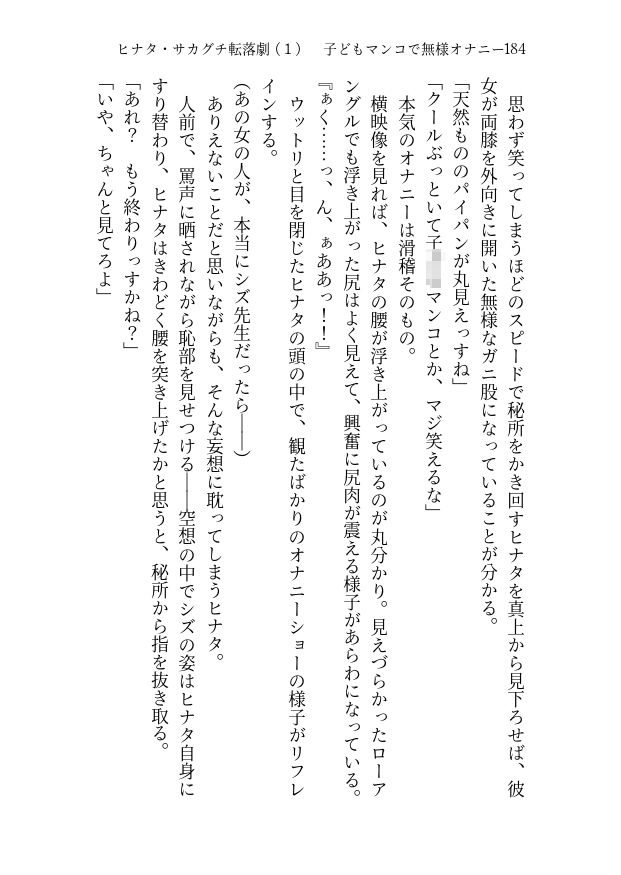 ヒナタ・サカグチ転落劇（１）　子どもマンコで無様オナニー184
思わず笑ってしまうほどのスピードで秘所をかき回すヒナタを真上から見下ろせば、彼
女が両膝を外向きに開いた無様なガニ股になっていることが分かる。
「天然もののパイパンが丸見えっすね」
「クールぶっといて子マンコとか、マジ笑えるな」
本気のオナニーは滑稽そのもの。
横映像を見れば、ヒナタの腰が浮き上がっているのが丸分かり。見えづらかったローア
ングルでも浮き上がった尻はよく見えて、興奮に尻肉が震える様子があらわになっている。
『ぁく……っ、ん、ぁああっ！！』
ウットリと目を閉じたヒナタの頭の中で、観たばかりのオナニーショーの様子がリフレ
インする。
（あの女の人が、本当にシズ先生だったら――）
ありえないことだと思いながらも、そんな妄想に耽ってしまうヒナタ。
人前で、罵声に晒されながら恥部を見せつける――空想の中でシズの姿はヒナタ自身に
すり替わり、ヒナタはきわどく腰を突き上げたかと思うと、秘所から指を抜き取る。
「あれ？　もう終わりっすかね？」
「いや、ちゃんと見てろよ」